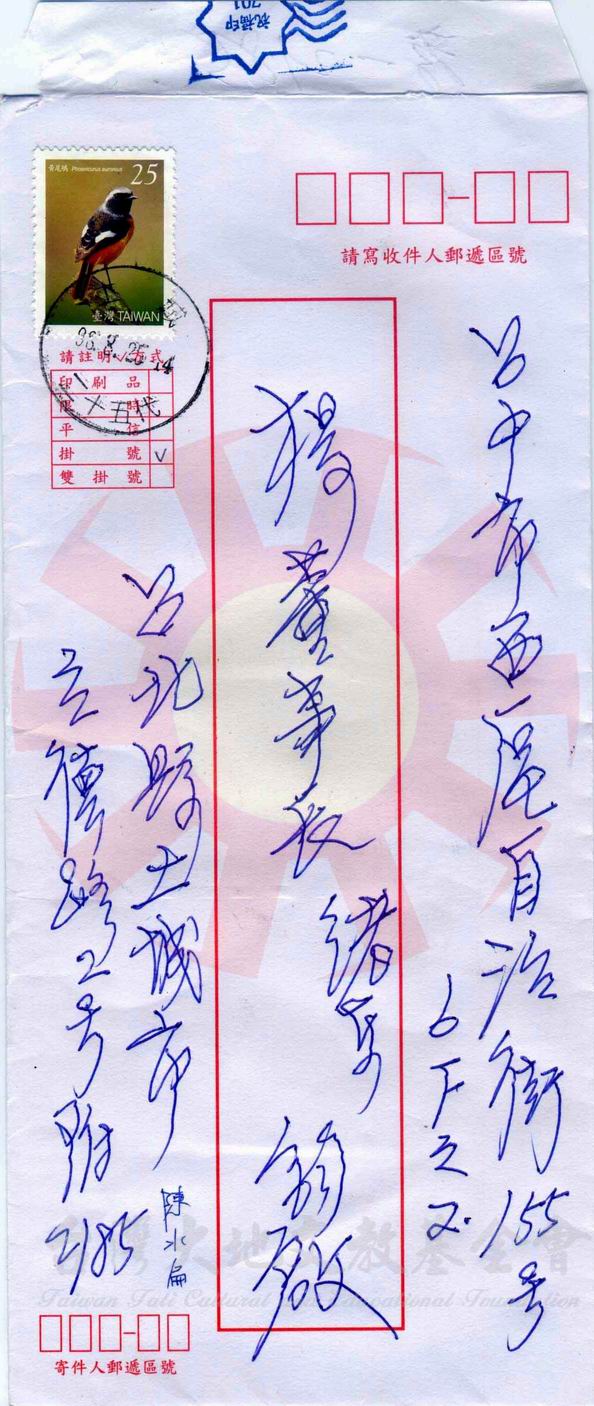 祝福印
701
黃尾鴝 Phoenicurus auroreus
25
臺灣 TAIWAN
98.8.25.14
二十五代
請寫收件人郵遞區號
請註明√方式
印刷品
限時
平信
掛號 ∨
雙掛號
台中市西屯區自治街155号
6F之2.
楊董事長
緒東
鈞啟
台北縣土城市
立德路2号附2185
陳水扁
台灣大地文教基金會
Taiwan Tati Cultural And Educational Foundation
寄件人郵遞區號